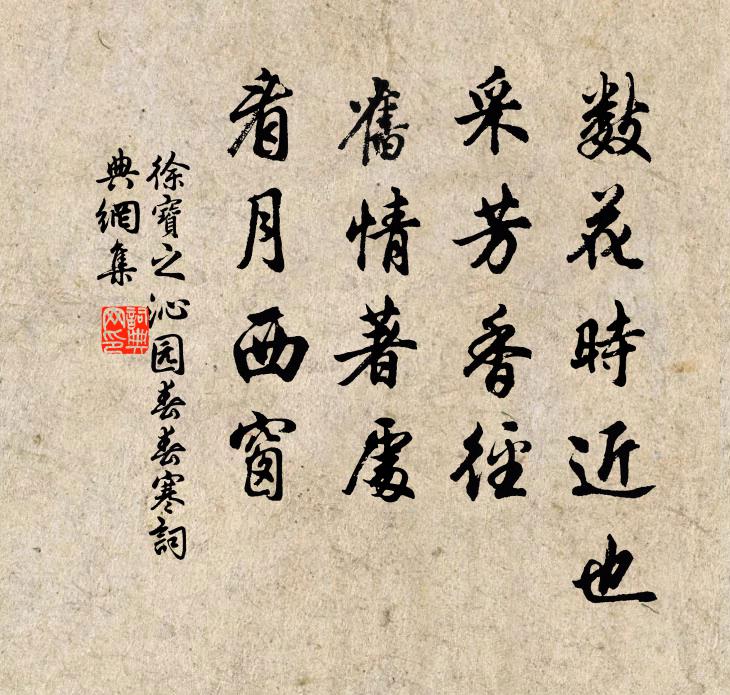 数花時近也
采芳香徑
舊情著處
看月西窗
徐寶之沁园春春寒詞
典網集
詞典網印